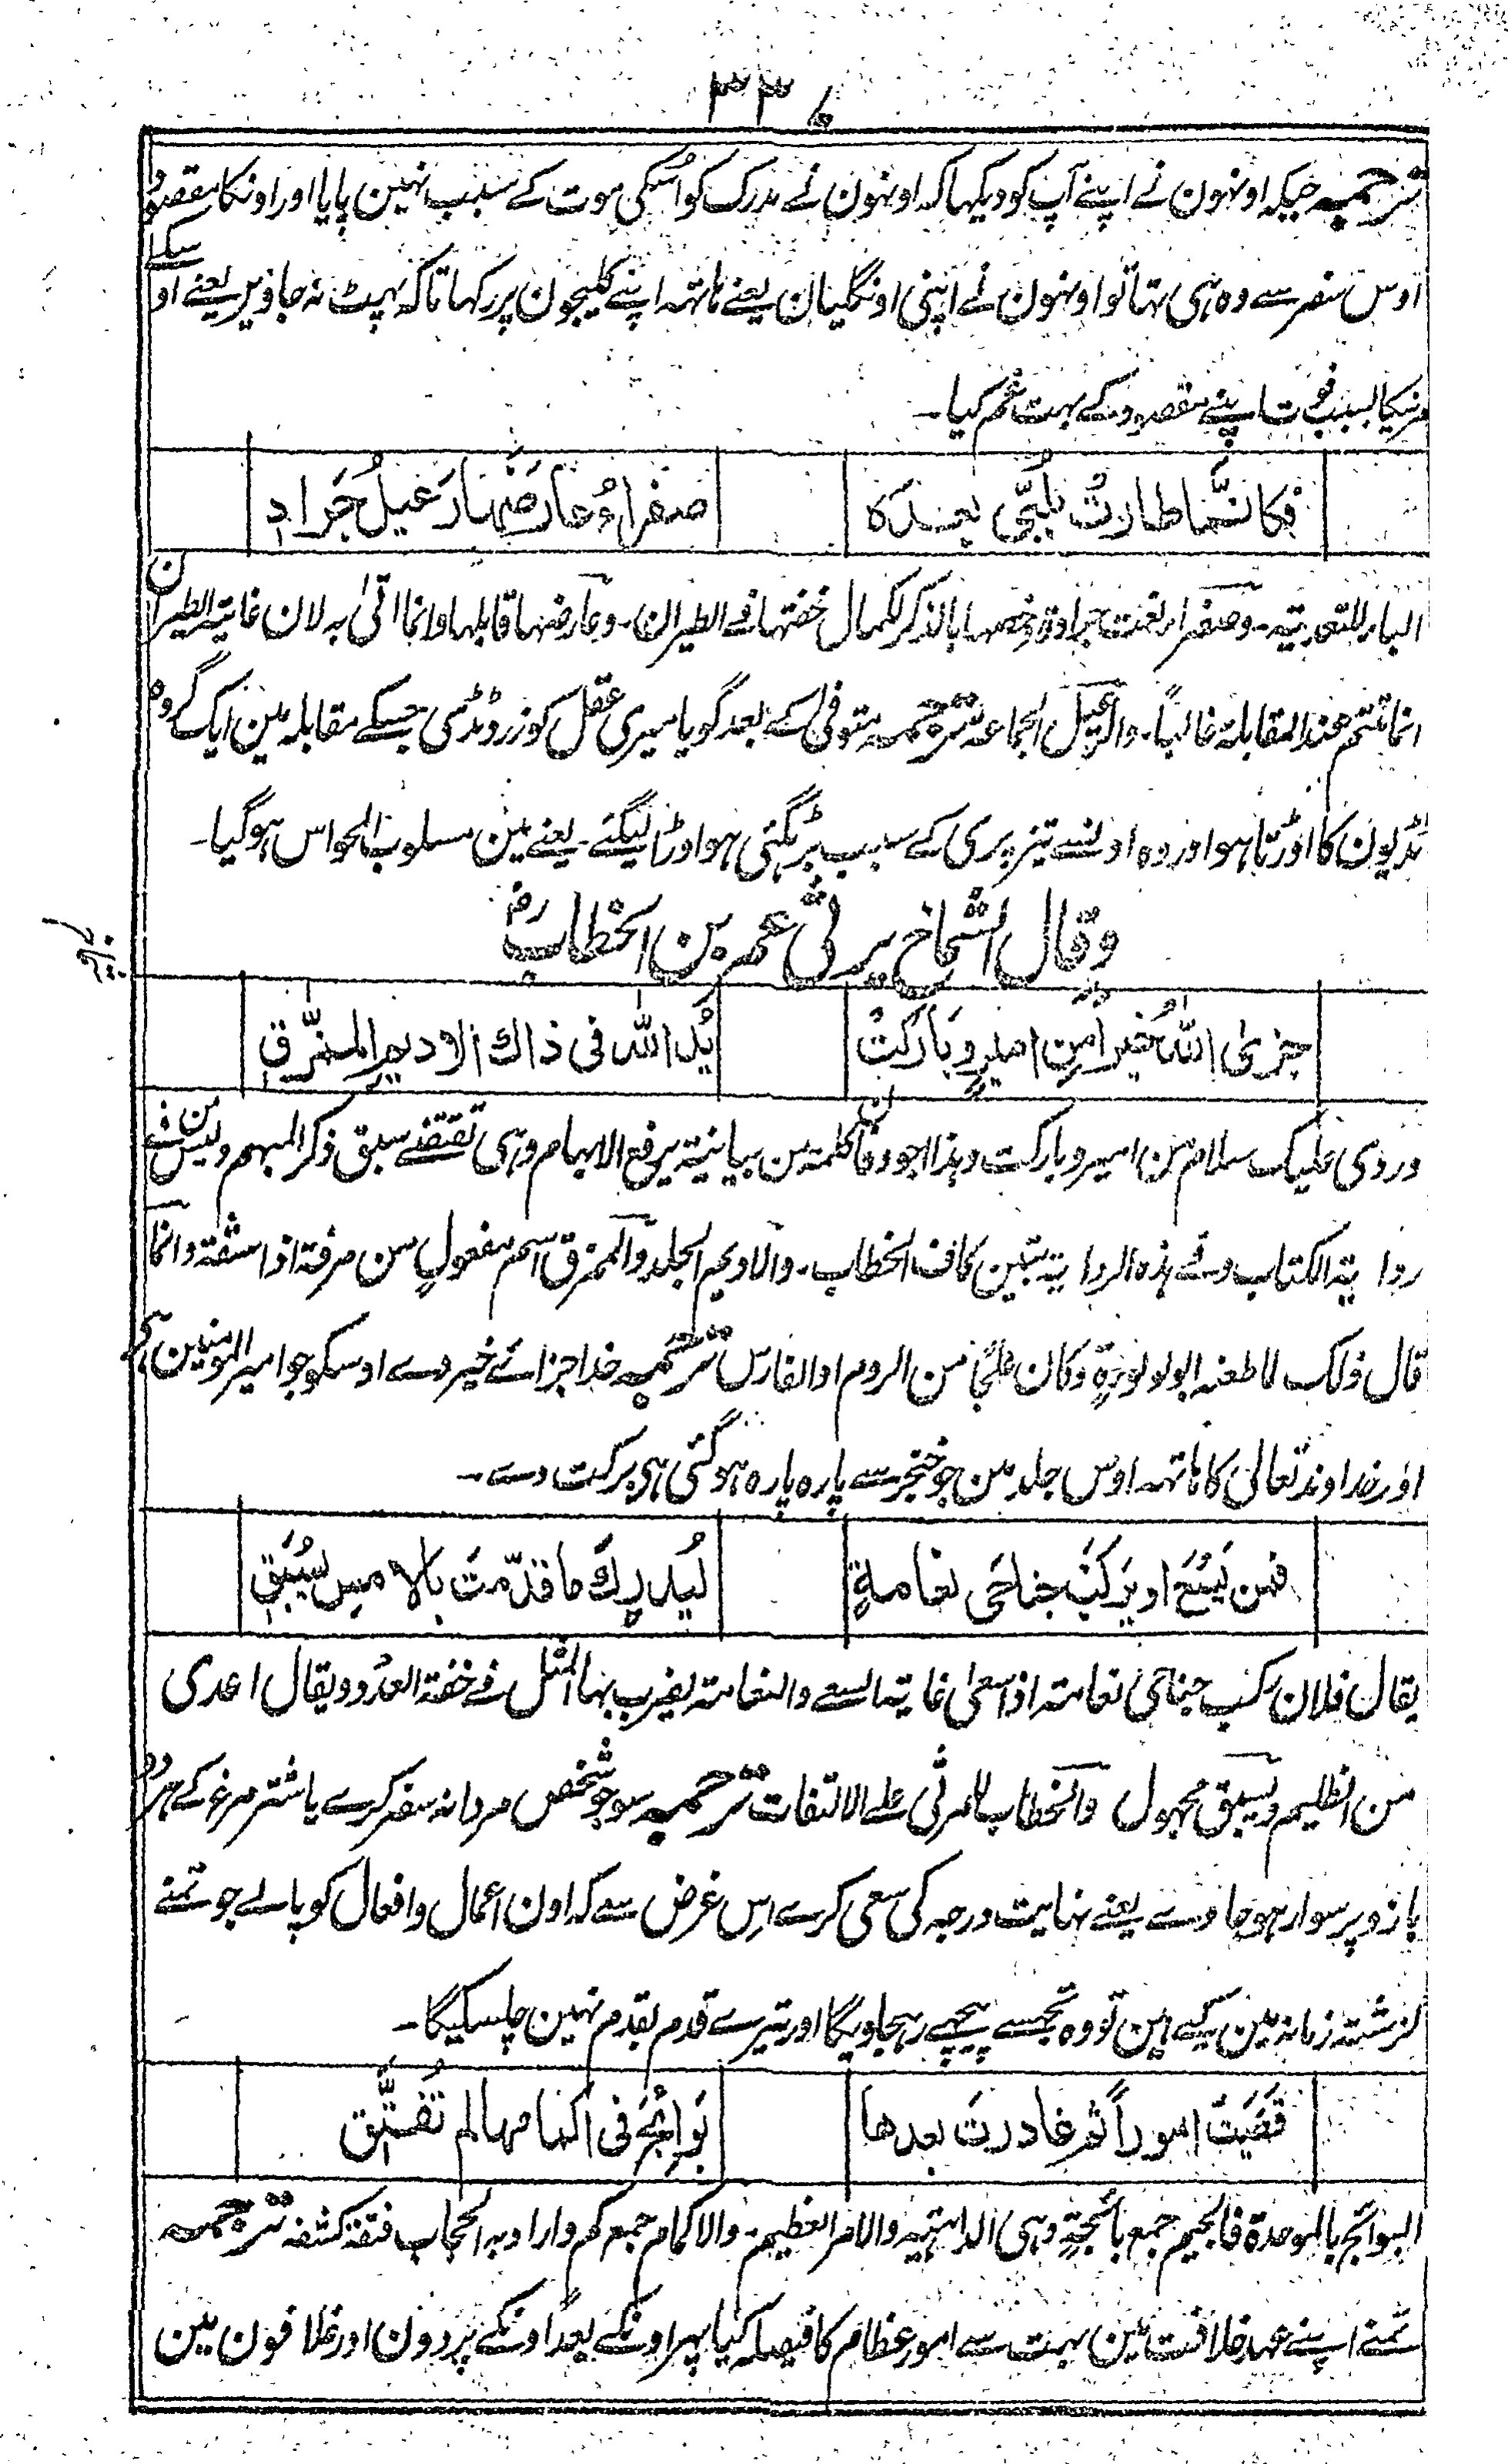 ۳۳۰
ترجمہ جبکہ اونہون نے اپنے آپ کو دیکہا کہ اونہون نے مدرک کو اُسکی موت کے سبب نہین پایا اور اونکا مقصود
اوس سفر سے وہ ہی تہا تو اونہون نے اپنی اونگلیان یعنے ہاتہہ اپنے کلیجون پر رکہا تاکہ پہٹ نہ جاوین یعنے اوسکے
مرنیکا بسبب فوت اپنے مقصود کے بہت غم کیا۔
فکانَّما طارتْ بلُبّی بعدہ صفراءُ عارضَہا رَعیلُ جَرادِ
الباء للتعدیۃ۔ وصفراء نعت جرادۃ وخصہا بالذکر لکمال خفتہا فے الطیران۔ وعارضہا قابلہا وانما اتی بہ لان غایۃ الطیران
انما تتم عند المقابلۃ غالباً۔ والرعیل الجماعۃ ترجمہ متوفی کے بعد گویا میری عقل کو زرد ٹڈی جسکے مقابلہ مین ایک گروہ
ٹڈیون کا اوڑتا ہو اور وہ اونسے تیز پری کے سبب بڑہگئی ہو اوڑا لیگئے۔ یعنے مین مسلوب الحواس ہوگیا۔
وقال الشماخ یرثی عمر بن الخطاب رض
جزی اللہُ خیراً من امیرٍ وبارکتْ یَدُ اللہ فی ذاك الادیمِ الممزَّقِ
وروی علیک سلام من امیر وبارکت وہذا اجود فان کلمۃ من بیانیۃ یرفع الابہام وہی تقتضے سبق ذکر المبہم ولیس من شے
روایۃ الکتاب وفے ہذہ الروایۃ تبین کاف الخطاب۔ والادیم الجلد والممزق اسم مفعول من مزقہ اذا شقہ وانما
قال ذلک لما طعنہ ابو لولوءۃ وکان علجًا من الروم او الفارس ترجمہ خدا جزائے خیر دے اوسکو جو امیر المومنین ہی
اور خداوند تعالی کا ہاتہہ اوس جلد مین جو خنجر سے پارہ پارہ ہوگئی ہی برکت دے۔
فمن یَسْعَ او یرکَبْ جناحَی نعامۃٍ لیُدرِكَ ما قدّمتَ بالامسِ یُسْبَقِ
یقال فلان رکب جناحی نعامۃ اذا سعی غایۃ السعے والنعامۃ یضرب بہا المثل فے خفۃ العدو ویقال اعدی
من الظلیم ویسبق مجہول والخطاب للمرثی علے الالتفات ترجمہ سو جو شخص مردانہ سفر کرے یا شتر مرغ کے ہر دو
بازو پر سوار ہوجاوے یعنے نہایت درجہ کی سعی کرے اس غرض سے کہ اون اعمال وافعال کو پالے جو تمنے
گزشتہ زمانہ مین کیے ہین تو وہ تجہسے پیچہے رہجاویگا اور تیرے قدم بقدم نہین چلسکیگا۔
قضَیتَ اموراً ثم غادرتَ بعدھا بَوائِجَ فی اکمامہا لم تُفتَّقِ
البوائج بالموحدۃ فالجیم جمع بائجۃٍ وہی الداہیۃ والامر العظیم۔ والاکمام جمع کم واراد بہ الحجاب فتقہ کشفہ ترجمہ
تمنے اپنے عہد خلافت مین بہت سے امور عظام کا فیصلہ کیا پہر اونکے بعد اونکے پردون اور غلافون مین